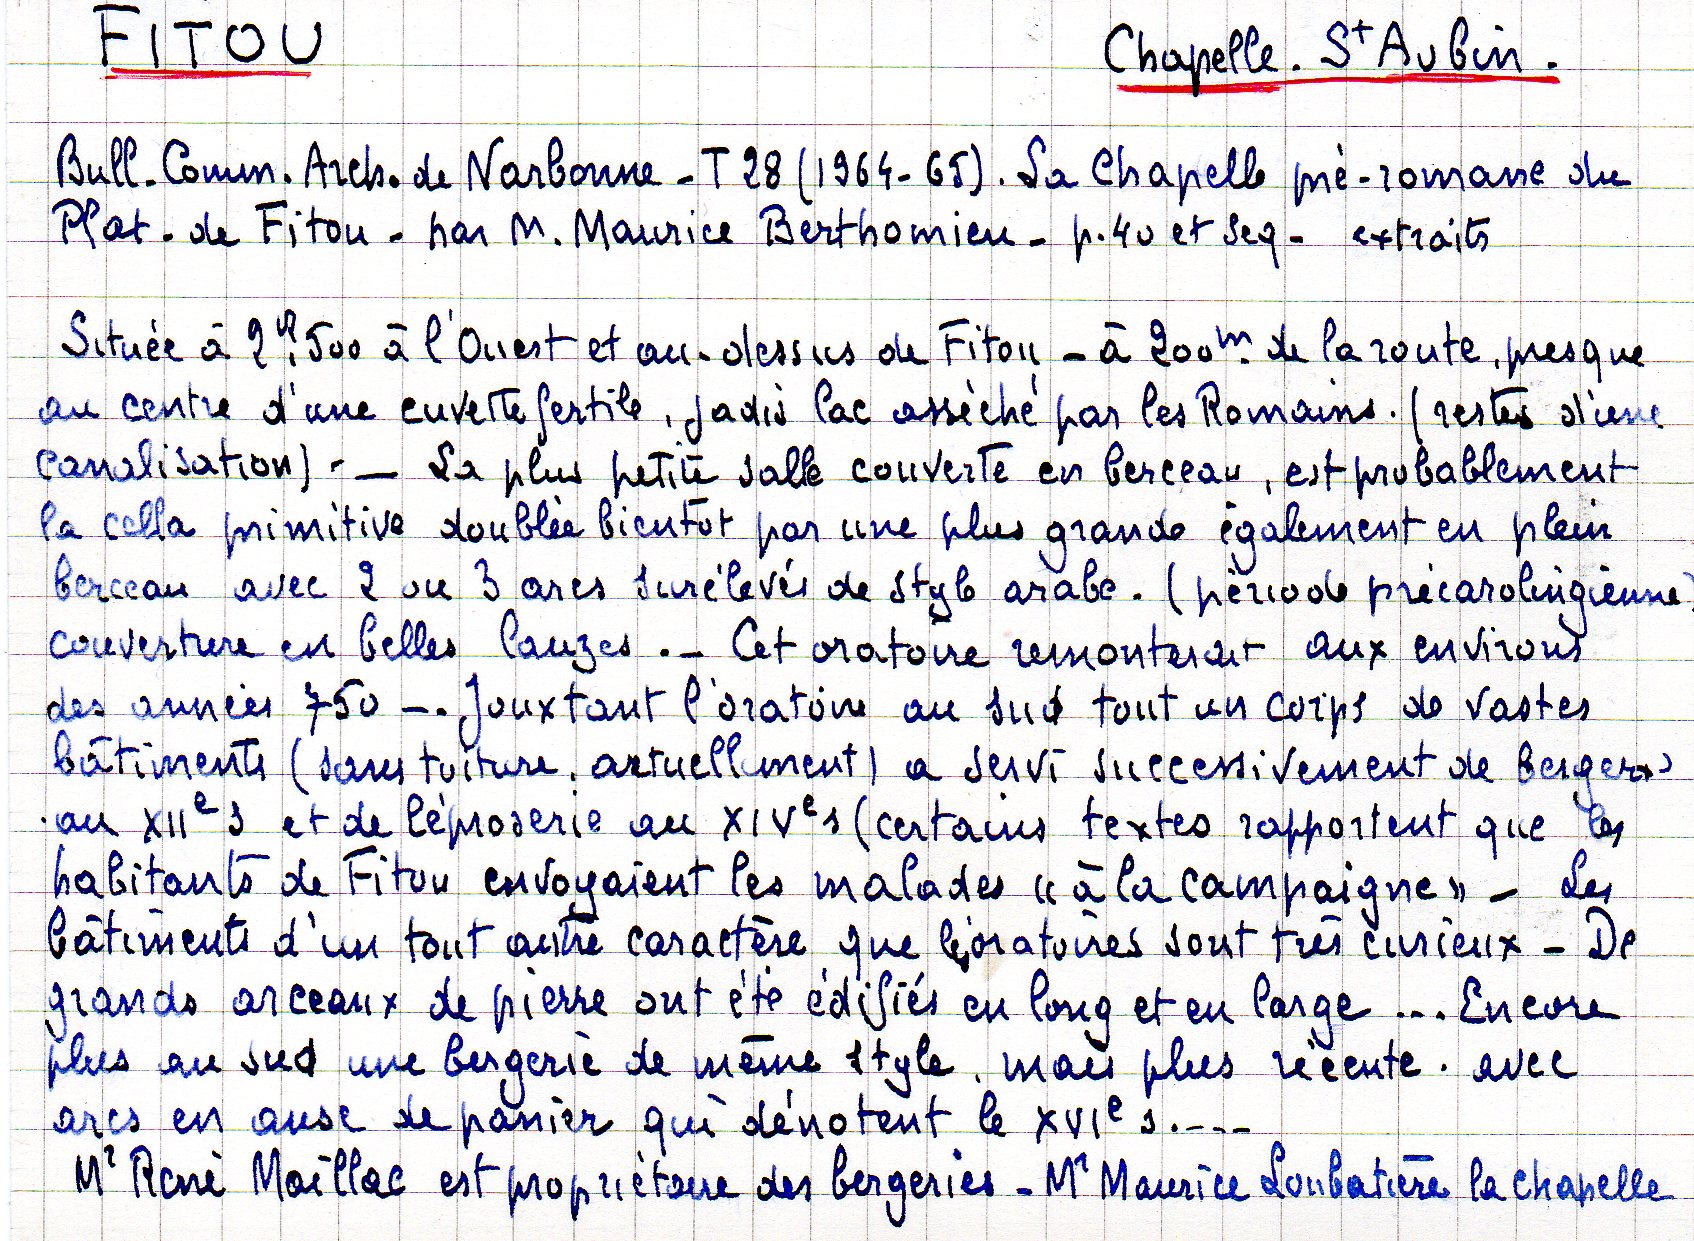 FITOU
Chapelle. St Aubin.
Bull. Comm. Arch. de Narbonne - T 28 (1964-65). La Chapelle pré-romane du
Plat. de Fitou - par M. Maurice Berthomieu - p. 40 et seq - extraits
Située à 2 500 à l'Ouest et au-dessus de Fitou - à 200m. de la route, presque
au centre d'une cuvette fertile, jadis lac asséché par les Romains. (restes d'une
canalisation) - — La plus petite salle couverte en berceau, est probablement
la cella primitive doublée bientôt par une plus grande également en plein
berceau avec 2 ou 3 arcs surélevés de style arabe. (période précarolingienne)
couverture en belles lauzes . - Cet oratoire remonterait aux environs
des années 750 -. Jouxtant l'oratoire au sud tout un corps de vastes
bâtiments (sans toiture, actuellement) a servi successivement de bergeries
au XIIe s et de léproserie au XIVe s (certains textes rapportent que les
habitants de Fitou envoyaient les malades « à la campaigne » - Les
bâtiments d'un tout autre caractère que l'oratoires sont très curieux - De
grands arceaux de pierre ont été édifiés en long et en large ... Encore
plus au sud une bergerie de même style, mais plus récente. avec
arcs en anse de panier qui dénotent le XVIe s. ---
Mr René Maillac est propriétaire des bergeries - Mr Maurice Loubatière la chapelle